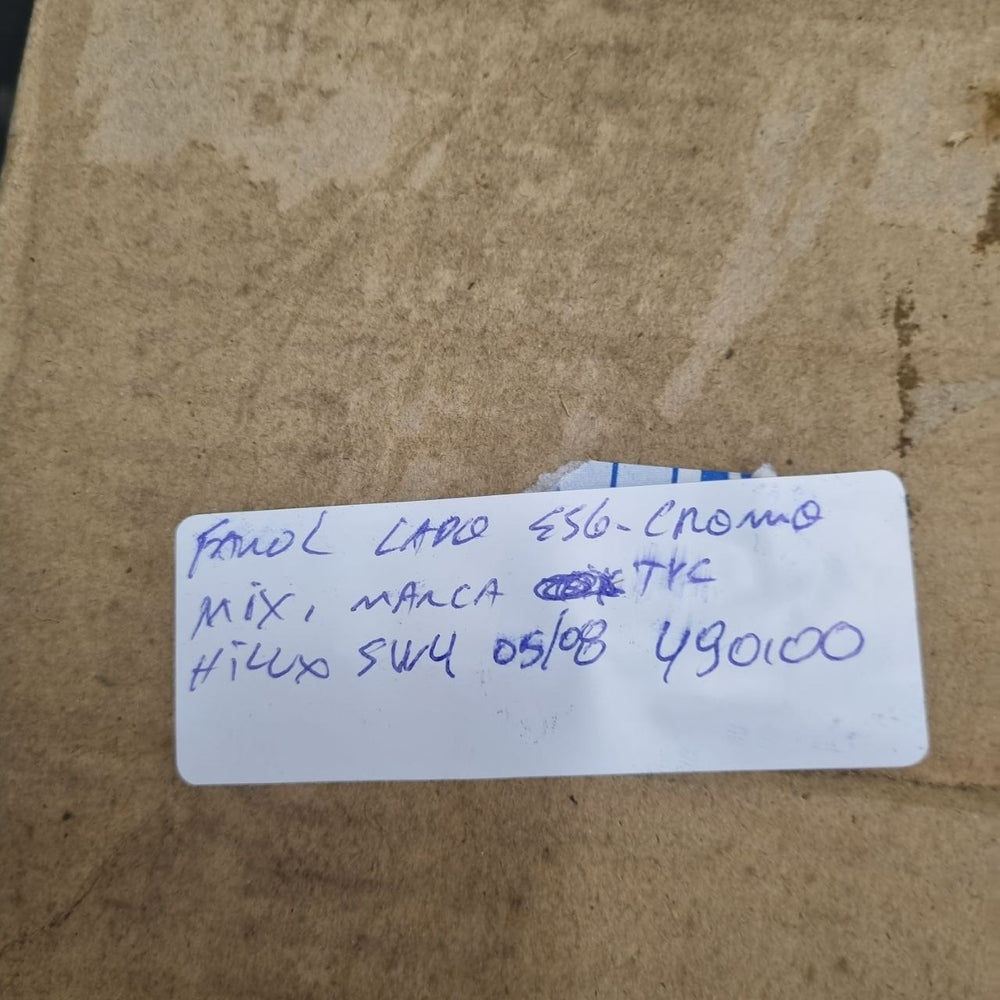 FAROL LADO ESQ- CROMO
MIX, MARCA TYC
HILUX SW4 05/08 490,00